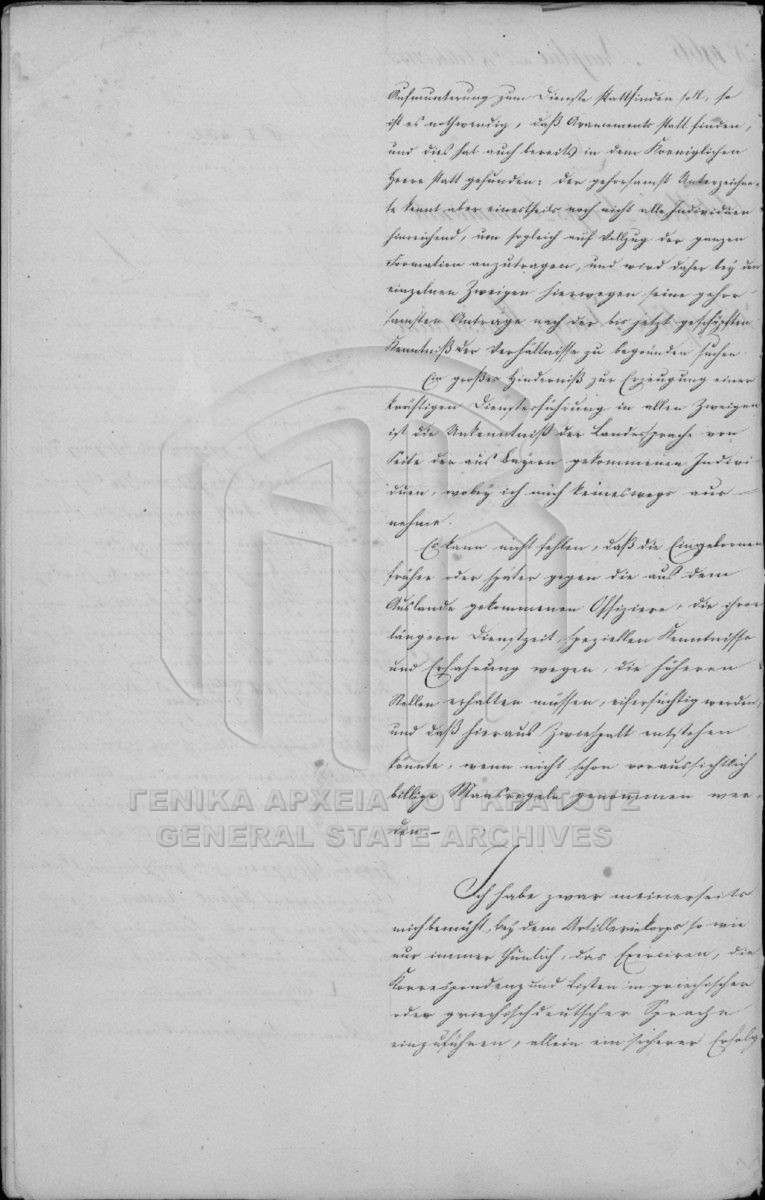 Aufmunterung zum Dienste stattfinden soll, so
ist es nothwendig, daß Avancements statt finden,
und dies hat auch bereits in dem Koeniglichen
Heere statt gefunden: der gehorsamst Unterzeichne-
te kennt aber einestheils noch nicht alle Individuen
hinreichend, um sogleich auf Vollzug der ganzen
Formation anzutragen, und wird daher bey den
einzelnen Zweigen hierwegen seine gehor-
samsten Antraege nach der bis jetzt geschöpften
Kenntniß der Verhältnisse zu begründen suchen.
Ein großes Hinderniß zur Erzeugung einer
kräftigen Dienstesführung in allen Zweigen
ist die Unkenntniß der Landessprache von
Seite der aus Bayern gekommenen Indivi-
duen, wobey ich mich keineswegs aus-
nehme.
Es kann nicht fehlen, daß die Eingebornen
früher oder später gegen die aus dem
Auslande gekommenen Offiziere, die ihrer
längern Dienstzeit, speziellen Kenntnisse
und Erfahrung wegen, die höheren
Stellen erhalten müssen, eifersüchtig werden,
und daß hieraus Zwiespalt entstehen
könnte, wenn nicht schon voraussichtlich
billige Maasregeln genommen wer-
den.-
ΓΕΝΙΚΑ ΑΡΧΕΙΑ ΤΟΥ ΚΡΑΤΟΥΣ
GENERAL STATE ARCHIVES
Ich habe zwar meinerseits
mich bemüht, bey dem Artilleriekorps so wie
nur immer thunlich, das Exerciren, die
Korrespondenz und Listen in griechischer
oder griechischdeutscher Sprache
einzuführen, allein ein sicherer Erfolg